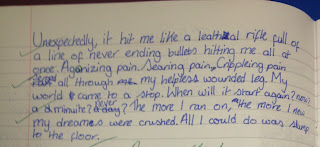 Unexpectedly, it hit me like a leathal rifle full of
a line of never ending bullets hitting me all at
once. Agonizing pain. Searing pain, Crippleing pain
all through my helpless wounded leg. My
world came to a stop. When will it start again? now?
a minuite? never? The more I ran on, the more I new
my dreams were crushed. All I could do was slump
to the floor.